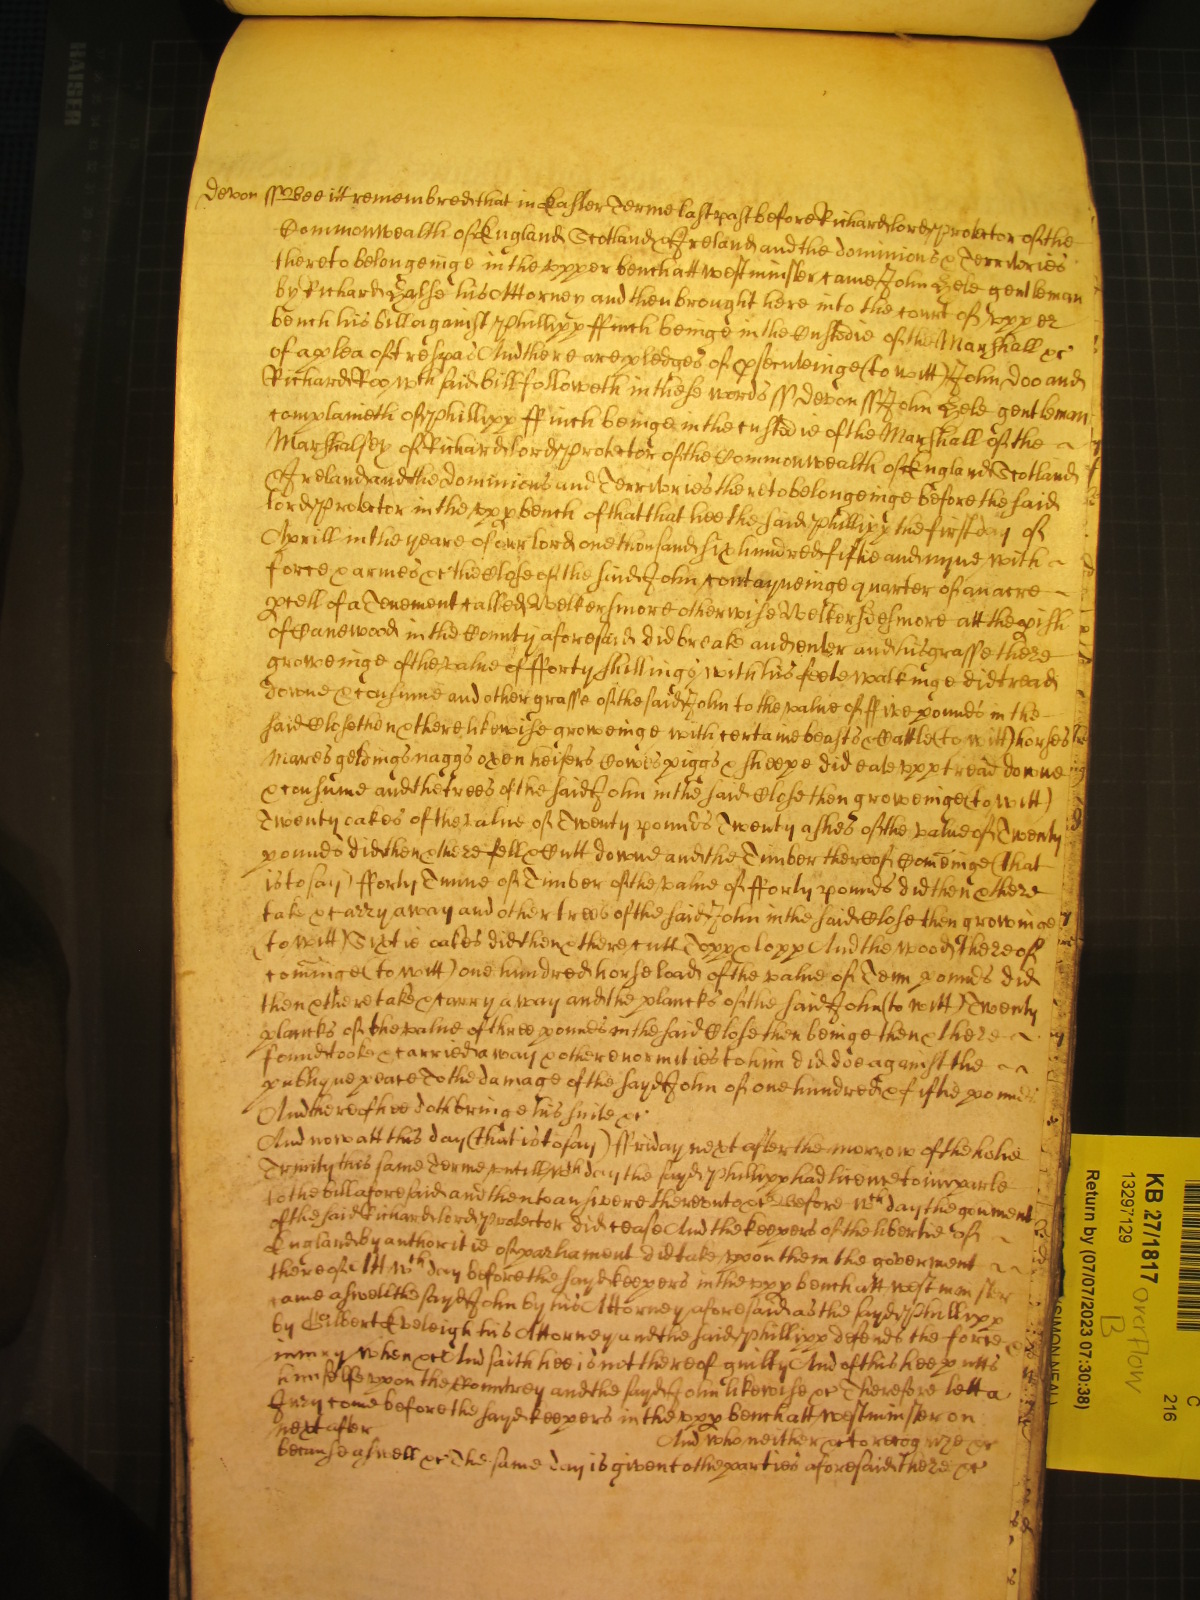 Devon ss Bee itt remembred that in Easter Terme last past before Richard lord Protector of the
Commonwealth of England Scotland & Ireland and the dominions & Territories
thereto belongeinge in the upper bench att westminster came John Hele gentleman
by Richard Halse his Attorney and then brought here into the court of upper
bench his bill against Phillipp ffinch beinge in the Custodie of the Marshall &c
of a plea of trespas And there are pledges of psecuteinge (to witt) John Doo and
Richard Roo wch said bill followeth in these words ss Devon ss John Hele gentleman
complaineth of Phillipp ffinch beinge in the custodie of the Marshall of the
Marshalsey of Richard lord Protector of the Commonwealth of England Scotland
& Ireland and the Dominions and Territories thereto belongeinge before the said
lord Protector in the upp bench of that that hee the said Phillipp the first day of
Aprill in the yeare of our lord one thousand six hundred fiftie and nyne with
force & armes &c the Close of the said John contayneinge quarter of an acre
pcell of a Tenement called Welkersmore otherwise Welkersdesmore att the pish
of Canewood in the County aforesaid did breake and enter and his grasse there
groweinge of the value of fforty shillings with his feete walkinge did tread
downe & consume and other grasse of the said John to the value of ffive pounds in the
said Close then & there likewise groweinge with certaine beasts & Cattle (to witt) horses
Mares geldings naggs oxen heifers Cowes piggs & sheepe did eate upp tread downe
& consume and the trees of the said John in the said Close then groweinge (to witt)
Twenty oakes of the value of Twenty pounds Twenty ashes of the value of Twenty
pounds did then & there fell & Cutt downe and the Timber thereof Comeinge (that
is to say) fforty Tunne of Timber of the value of fforty pounds did then & there
take & carry away and other trees of the said John in the said Close then growinge
(to witt) Sixtie oakes did then & there cutt Topp & lopp And the wood thereof
cominge (to witt) one hundred horse load of the value of Tenn pounds did
then & there take & carry away and the plancks of the said John (to witt) Twenty
plancks of the value of three pounds in the said Close then beinge then & there
found tooke & carried away & other enormities to him did doe against the
publique peace To the damage of the sayd John of one hundred & fiftie pounds
And thereof hee doth bringe his suite &c
And now att this day (that is to say) ffriday next after the morrow of the holie
Trinity this same Terme untill wch day the sayd Phillipp had licence to imparle
to the bill aforesaid and then to answere thereunto &c Before wch day the goument
of the said Richard lord Protector did cease And the keepers of the libertie of
England by authoritie of parliament did take upon them the goverment
thereof Att wch day before the sayd keepers in the upp bench att westminster
came aswell the sayd John by his Attorney aforesaid as the sayd Phillipp
by Gilbert Eveleigh his Attorney and the said Phillipp defends the force &
iniury when &c And saith hee is not thereof guilty And of this hee putts
himselfe upon the Countrey and the sayd John likewise &c Therefore lett a
Jury come before the sayd keepers in the upp bench att westminster on
next after And who neither &c to recognize &c
because aswell &c The same day is given to the parties aforesaid there &c
HAISER
KB 27/1817
overflow
B
13297129
Return by (07/07/2023 07:30:38)
C
216